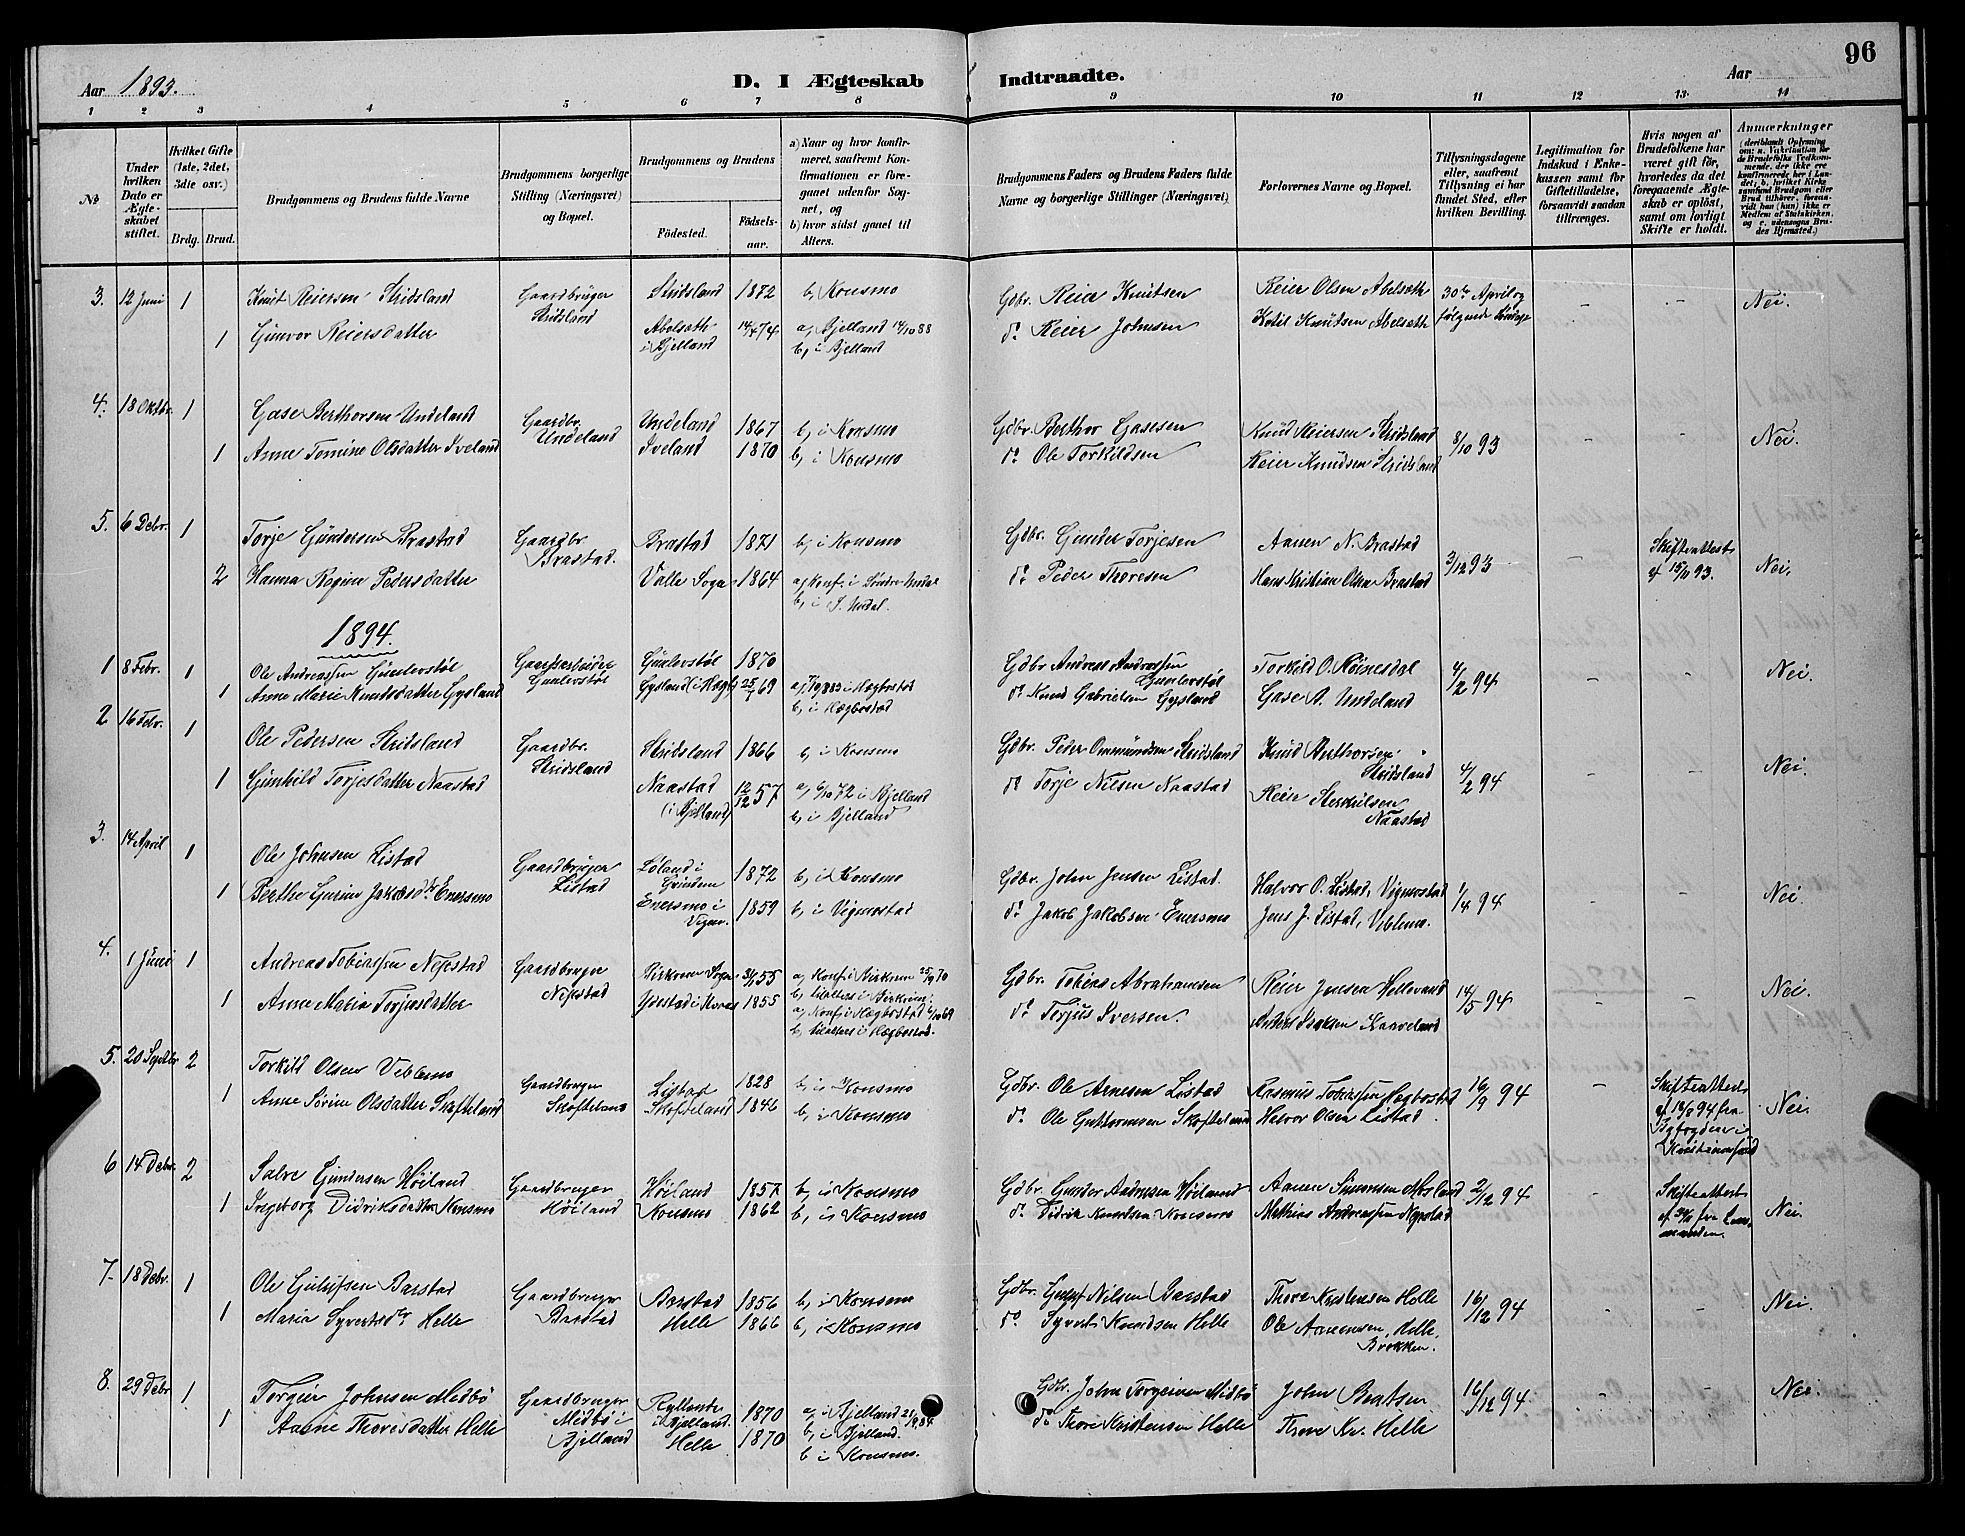 96
Aar 1893.
D. I Ægteskab Indtraadte.
Aar
1 2 3 4 5 6 7 8 9 10 11 12 13 14
№
Under hvilken Dato er Ægteskabet stiftet.
Hvilket Gifte (1ste, 2det, 3die osv.)
Brdg. Brud.
Brudgommens og Brudens fulde Navne
Brudgommens borgerlige Stilling (Næringsvei) og Bopæl.
Brudgommens og Brudens
Fødested. Fødselsaar.
a) Naar og hvor konfirmeret, saafremt Konfirmationen er foregaaet udenfor Sognet, og
b) hvor sidst gaaet til Alters.
Brudgommens Faders og Brudens Faders fulde Navne og borgerlige Stillinger (Næringsvei)
Forlovernes Navne og Bopæl.
Tillysningsdagene eller, saafremt Tillysning ei har fundet Sted, efter hvilken Bevilling.
Legitimation for Indskud i Enkekassen samt for Giftetilladelse, forsaavidt saadan tiltrænges.
Hvis nogen af Brudefolkene har været gift før, hvorledes da det foregaaende Ægteskab er opløst, samt om lovligt Skifte er holdt.
Anmærkninger
3. 12 Juni 1 Knut Reiersen Stridsland Gaardbruger Stridsland Stridsland 1872 b, Konsmo Gdbr. Reier Knutsen Reier Olsen Abelseth 30te April og følgende Søndage - - Nei.
1 Gunvor Reiersdatter Abelseth i Bjelland 14/4 74 a, Bjelland 14/10 88 b, i Bjelland do Reier Johnsen Ketil Knutsen Abelseth
4. 18 Oktbr. 1 Gase Berthorsen Undeland Gaardbr. Undeland Undeland 1867 b, i Konsmo Gdbr. Berthor Gasesen Knud Reiersen Stridsland 8/10 93 - - Nei.
1 Anne Tomine Olsdatter Iveland Iveland 1870 b, i Konsmo do Ole Torkildsen Reier Knudsen Stridsland
5. 6 Debr. 1 Torje Gundersen Brastad Gaardbr. Brastad. Brastad 1871 b, i Konsmo Gdbr. Gunder Torjesen Aanen N. Brastad 3/12 93 - Skifteattest af 15/11 93. Nei.
2 Hanna Regine Pedersdatter Valle Sogn 1864 a, Konf. i Søndre Undal b, i S. Undal. do Peder Thoresen Hans Kristian Olsen Brastad
1894.
1 8 Febr. 1 Ole Andreassen Gunlevstøl Gaardbruger Gunlevstøl Gunlevstøl 1870 Gdbr Andreas Andreassen Gunlevstøl Torkild O. 4/2 94 Nei.
1 Anne Marie Knudsdatter Gysland Gysland i Hægb. 25/1 69 i Hægbostad b, i Hægbostad do Knud Gabrielsen Gysland Gase A. Undeland
2 16 Febr. 1 Ole Pedersen Stridsland Gaardbr. Stridsland Stridsland 1866 b, i Konsmo Gdbr. Peder Ommundsen Stridsland Knud Anthorsen Stridsland 4/2 94 - - Nei.
1 Gunhild Torjesdatter Naastad Naastad (i Bjelland) 12/12 57 a, 6/10 72 i Bjelland b, i Bjelland do Torje Nilsen Naastad Reier Naastad
3. 14 April 1 Ole Johnsen Listad Gaardbruger Listad Løland i Grindem 1872 b, i Konsmo Gdbr. John Jensen Listad. Halvor O. Listad, Vigmostad 1/4 94 - - Nei
1 Berthe Gurine Jakobsdtr Enersmo Enersmo i Vigm. 1859 b, i Vigmostad do Jakob Jakobsen Enersmo Jens J. Listad, Viblemo.
4. 1 Juni 1 Andreas Tobiassen Nepstad Gaardbruger Nepstad Birkrem Sogn 3/1 55 a, Konf. i Birkrem 25/9 70 b, til alters i Birkrem Gdbr. Tobias Abrahamsen Reier Jensen Hellevand 14/5 94 - - Nei.
1 Anne Maria Torjusdatter 1855 a, Konf. i Hægbostad 6/10 69 b, til alters i Hægbostad. do Torjus Iversen.
5. 20 Septbr 2 Torkild Olsen Viblemo Gaardbruger Skofteland Listad 1828 b, i Konsmo Gdbr. Ole Arnesen Listad Rasmus Tobiassen Hægbostad 16/9 94 - Skifteattest af 12/9 94 fra Byfogden i Kristianssand Nei
1 Anne Sørine Olsdatter Skofteland Skofteland 1846 b, i Konsmo do Ole Guttormsen Skofteland Halvor Olsen Listad
6 14 Debr. 2 Salve Gundersen Høiland Gaardbruger Høiland Høiland 1857 b, i Konsmo Gdbr. Gunder Andresen Høiland Aanen Simonsen Mosland 2/12 94 - Skifteattest af fra Lensmanden. Nei.
1 Ingeborg Didriksdatter Konsmo Konsmo 1862 b, i Konsmo do Didrik Knudsen Konsmo Mathias Andreassen Nepstad
7. 18 Debr. 1 Ole Gjulufsen Barstad Gaardbruger Barstad Barstad 1856 b, i Konsmo Gdbr. Nilsen Barstad Thore Kristensen Helle 16/12 94 - - Nei.
1 Maria Syvertsdtr Helle Helle 1866 b, i Konsmo do Syvert Knudsen Helle Ole Aanensen, Helle, Brokken.
8. 29 Debr 1 Torgeir Johnsen Midbø Gaardbruger Midbø i Bjelland i Bjelland. 1870 a, i Bjelland b, i Bjelland. Gdbr. John Torgeirsen Midbø John Bentsen 16/12 94 - - Nei.
1 Aanne Thoresdatter Helle Helle 1870 b i Konsmo. do Thore Kristensen Helle Thore Kr. Helle